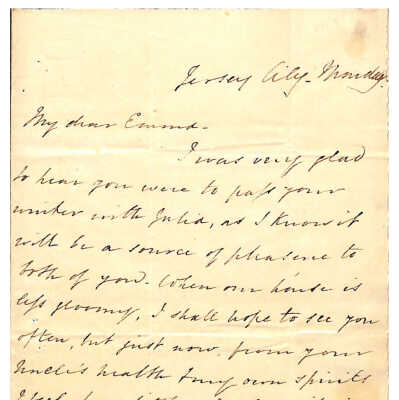 Jersey City - Monday.
My dear Emma -
I was very glad
to hear you were to pass your
winter with Julia, as I know it
will be a source of pleasure to
both of you - When our house is
less gloomy, I shall hope to see you
often, but just now, from your
Uncle's health & my own spirits
I feel